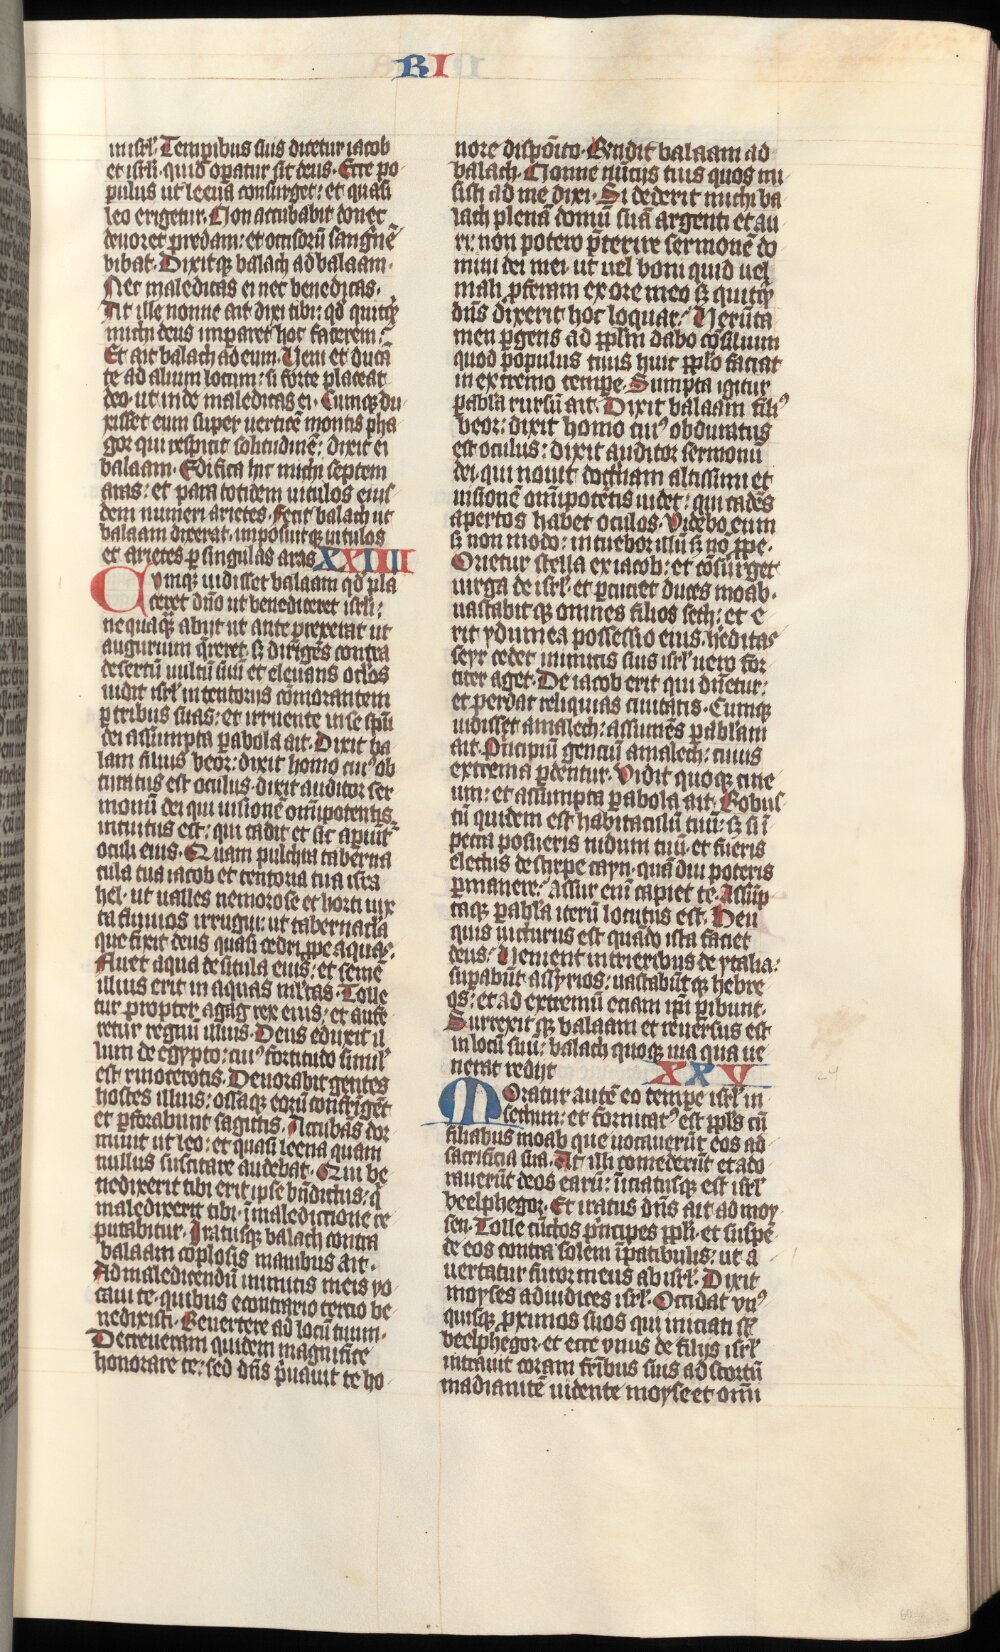 BI
in isrl̄. Temp̲ibus suis dicetur iacob
et isrl̄i quid op̲atur sit deus. Ecce po
pulus ut leena consurget: et quasi
leo erigetur. Non accubabit donec
deuoret predam: et occisorū sangīnē
bibat. Dixitq̷ balach ad balaam.
Nec maledicas ei nec benedicas.
Ait ille nonne ait dixi tibi: qd̄ quitq̷
michi deus imparet hoc facerem:
Et ait balach ad eum. Veni et ducā
te ad alium locum: si forte placeat
deo. ut inde maledicas ei. Cumq̷ du
xisset eum super verticē montis pha
gor qui respicit solitudinē: dixit ei
balaam. Edifica hic michi septem
aras: et para totidem uitulos eius
dem numeri arietes. Fecit balach ut
balaam dixerat. imposuitq̷ uitulos
et arietes p̲ singulas aras XXIIII
Cvmq̷ uidisset balaam qd̄ pla
ceret dn̄o ut benediceret isrl̄i:
nequaq̄ꝫ abijt ut ante p̲rexerat ut
augurium q̄reret. sꝫ dirigēs contra
desertū uultū suū et eleuans oc̄los
uidit isrl̄ in tentorijs cōmorantem
p̲ tribus suas: et irruente in se sp̄u
dei assūmpta p̲abola ait. Dixit ba
lam filius beor: dixit homo cui9 ob
turatus est oculus. dixit auditor ser
monū dei qui uisionē om̄ipotentis
intuitus est: qui cadit et sic ap̲iuūt
oculi eius. Quam pulchra taberna
cula tua iacob et tentoria tua isra
hel. ut ualles nemorose et horti iux
ta fluuios irrugui: ut tabernac̄la
que fixit deus quasi cedri ꝓpe aquas.
Fluet aqua de situla eius: et semē
illius erit in aquas ml̄tas. Tolle
tur propter agag rex eius: et aufe
retur regnū illius. Deus eduxit il
lum de egypto: cui9 fortitudo simil̄
est rinocerotis. Deuorabit gentes
hostes illius: ossaq̷ eorū confrīgēt
et p̲forabunt sagittis. Accubās dor
miuit ut leo: et quasi leena quam
nullus suscitare audebat. Qui be
nedixerit tibi erit ipse bn̄dictus: q̄
maledixerit tibi. ī maledictione re
putabitur. Iratusq̷ balach contra
balaam cōplosis manibus ait.
Ad maledicendū inimicis meis vo
caui te. quibus econtrario tercio be
nedixisti. Reuertere ad locū tuum.
Decreueram quidem magnifice
honorare te: sed dn̄s p̄uauit te ho
nore dispōito. R̄ndit balaam ad
balach. Nonne nūcijs tuis quos mi
sisti ad me dixi. Si dederit michi ba
lach plenā domū suā argenti et au
ri: non potero p̄terire sermonē do
mini dei mei. ut uel boni quid uel
mali. ꝓferam ex ore meo sꝫ quitq̷
dn̄s dixerit hoc loquar: Verūta
men p̲gens ad pp̄lm̄ dabo cōsilium
quod populus tuus huic pp̄lo faciat
in extremo tempe̲. Sumpta igitur
p̲abl̄a rursū ait. Dixit balaam fili9
beor: dixit homo cui9 obduratus
est oculus: dixit auditor sermonū
dei. qui nouit doctnam altissimi et
uisionē om̄ipotētis uidet: qui cadēs
apertos habet oculos. Videbo eum
sꝫ non modo: intuebor illū sꝫ nō ꝓpe.
Orietur stella ex iacob: et cōsurget
uirga de isrl̄. et p̲cuciet duces moab.
uastabitq̷ omnes filios seth: et e
rit ydumea possessio eius. heditas
seyr cedet inimicis suis isrl̄ uero for
titer aget. De iacob erit qui dn̄etur:
et perdat reliquias ciuitatis. Cumq̷
uidisset amalech: assumēs p̲abl̄am
ait. P̄ncipiū genciū amalech: cuius
extrema p̲dentur. Vidit quoq̷ cine
um: et assumpta p̲abola ait. Robus
tū quidem est habitaculū tuū: sꝫ si ī
petra posueris nidum tuū. et fueris
electus de stirpe cayn. quādiu poteris
p̲manere: assur eni capiet te. Assūp
taq̷ p̲abl̄a iterū locutus est. Heu
quis uicturus est quādo ista faciet
deus: Venient in trieribus de ytalia:
sup̲abūt assyrios: uastabūtq̷ hebre
os: et ad extremū etiam ip̄i p̲ibunt.
Surrexitq̷ balaam et reuersus est
in locū suū: balach quoq̷ uia qua ue
nerat redijt XXV
Moratur autē eo tempe̲ isrl̄ in
sethim: et fornicat9 est pp̄ls cū
filiabus moab que uocauerūt eos ad
sacrificia sua. At illi comederūt et ado
rauerūt deos earū: iniciatusq̷ est isrl̄
beelphegor. Et iratus dn̄s ait ad moy
sen. Tolle cūctos p̄ncipes pp̄li. et suspē
de eos contra solem ī patibulis: ut a
uertatur furor meus ab isrl̄. Dixit
moyses ad iudices isrl̄. Occidat vn9
quisq̷ ꝓximos suos qui iniciati sūt
beelphegor. et ecce vnus de filijs isrl̄
intrauit coram fribus suis ad scortū
madianitē uidente moyse et omī
60